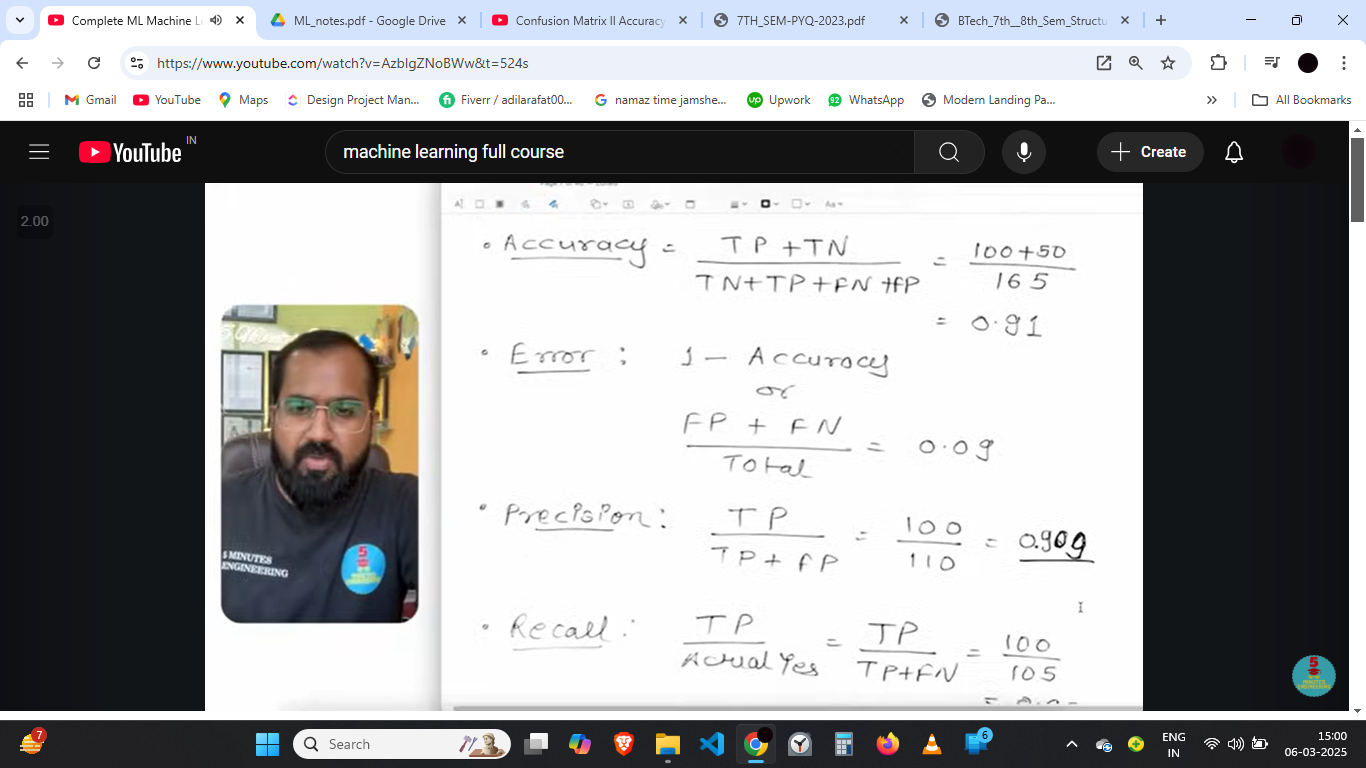 Complete ML Machine L
ML_notes.pdf - Google Drive
Confusion Matrix II Accuracy
7TH_SEM-PYQ-2023.pdf
BTech_7th__8th_Sem_Structu
https://www.youtube.com/watch?v=AzbIgZNoBWw&t=524s
Gmail
YouTube
Maps
Design Project Man...
Fiverr / adilarafat00...
namaz time jamshe...
up Upwork
92 WhatsApp
Modern Landing Pa...
»
All Bookmarks
YouTube IN
machine learning full course
Create
2.00
• Accuracy = TP + TN / TN + TP + FN + FP = 100 + 50 / 165
= 0.91
• Error : 1 — Accuracy
or
FP + FN / Total = 0.09
• Precision : TP / TP + FP = 100 / 110 = 0.909
• Recall : TP / Actual Yes = TP / TP + FN = 100 / 105
5 MINUTES
ENGINEERING
5
MINUTES
ENGINEERING
7
Search
6
ENG
IN
15:00
06-03-2025